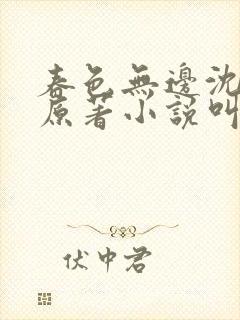 春色無邊沈
原著小說叫
伏中君